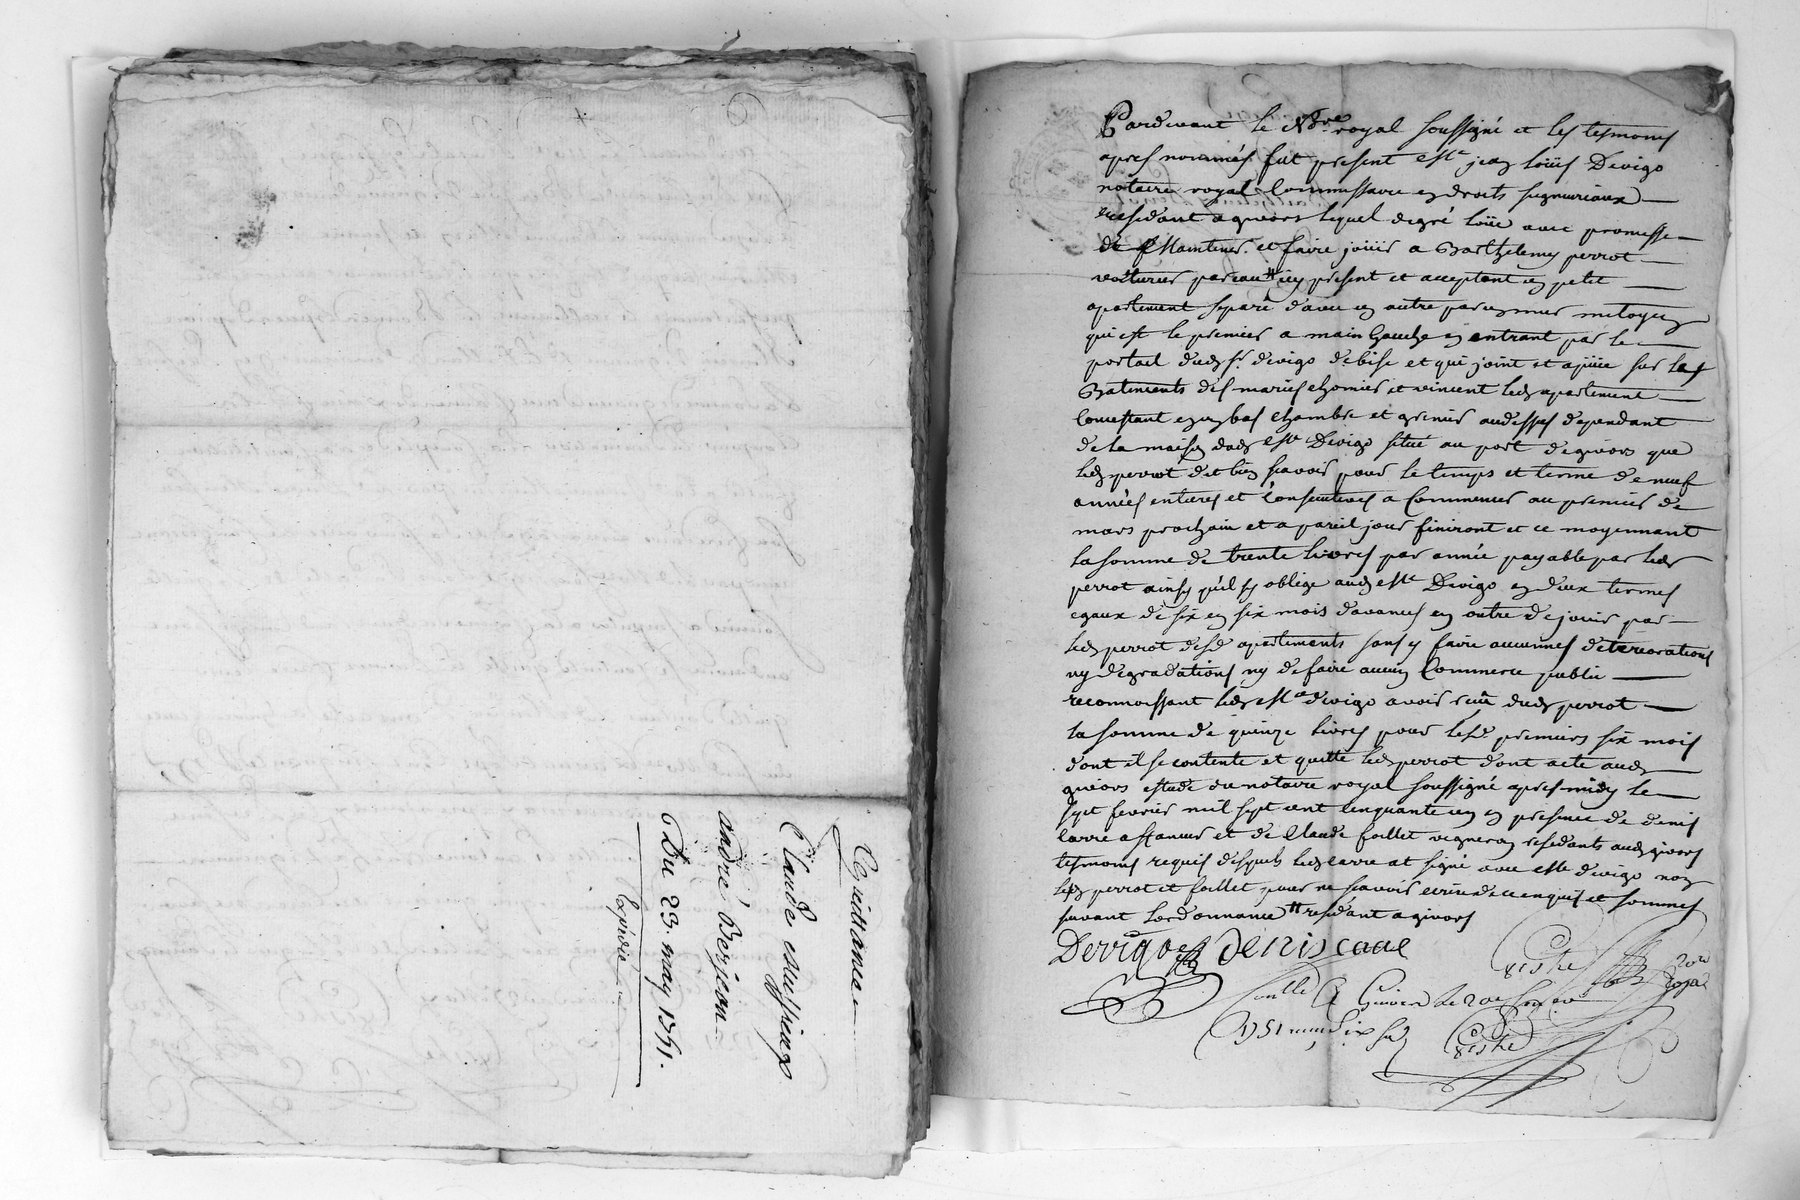 Quittance
Claude
andré Berjeon
Du 23. may 1751.
Expédié
Pardevant le No.re royal soussigné et les tesmoins
apres nommés fut present Me. jean loüis Devigo
notaire royal Commissaire en droits seigneuriaux
residant a givors lequel de gré loüe avec promesse
de Maintenir et faire joüir a Barthelemy perrot
voiturier par eau # icy present et acceptant un petit
apartement separé d'avec un autre par un mur mitoyen
qui est le premier a main Gauche en entrant par le
portail dud. sr. devigo de bise et qui joint et apuie sur les
Batiments des mariés chomier et vincent led. apartement
Consistant en un bas Chambre et grenier audessus dependant
de la maison dud. Me. Devigo situé au port de givors que
led. perrot dit bien scavoir pour le temps et terme de neuf
années entieres et Consecutives a Commencer au premier de
mars prochain et a pareil jour finiront et ce moyennant
la somme de trente livres par année payable par led.
perrot ainsy qu'il sy oblige aud. Me. Devigo en deux termes
egaux de six en six mois d'avances en outre de jouir par
led. perrot desd. apartements sans y faire aucunnes deteriorations
ny degradations ny de faire aucun Commerce public
reconnoissant led. Me. devigo avoir reçu dud. perrot
la somme de quinze livres pour lesd. premiers six mois
dont il se contente et quitte led. perrot dont acte aud.
givors estude du notaire royal soussigné apres midy le
sept fevrier mil sept cent cinquante un en presence de denis
carre affaneur et de Claude foillet vigneron residants aud. givors
tesmoins requis desquels led. carre at signé avec Me. devigo non
led. perrot et foillet pour ne scavoir ecrire de ce enquis et sommés
suivant lordonnance # residant a givors
Devigo Denis care
No.re royal
Con.llé A Givors le
1751